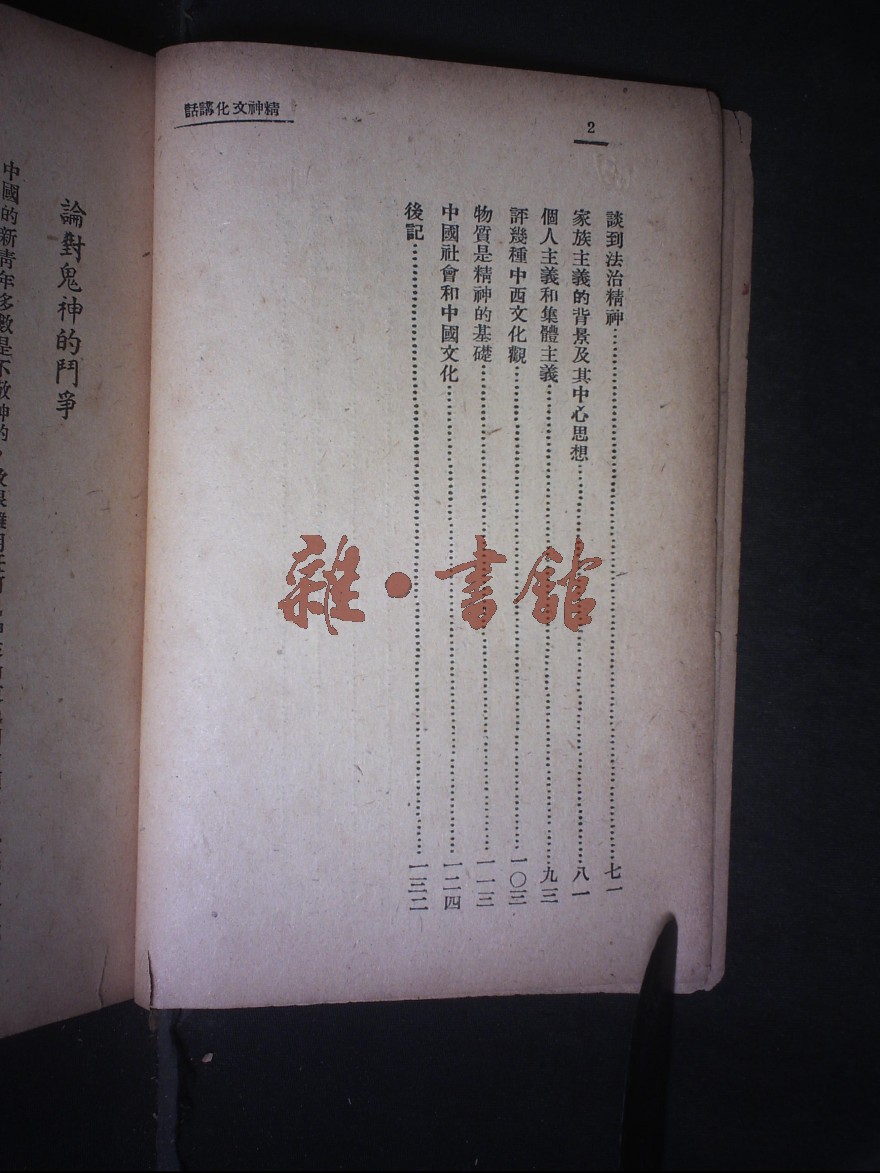 2
精神文化講話
談到法治精神……七一
家族主義的背景及其中心思想……八一
個人主義和集體主義……九三
評幾種中西文化觀……一〇三
物質是精神的基礎……一一三
中國社會和中國文化……一二四
後記……一三二
雜•書館
論對鬼神的鬥爭
中國的新青年多數是不敬神的，